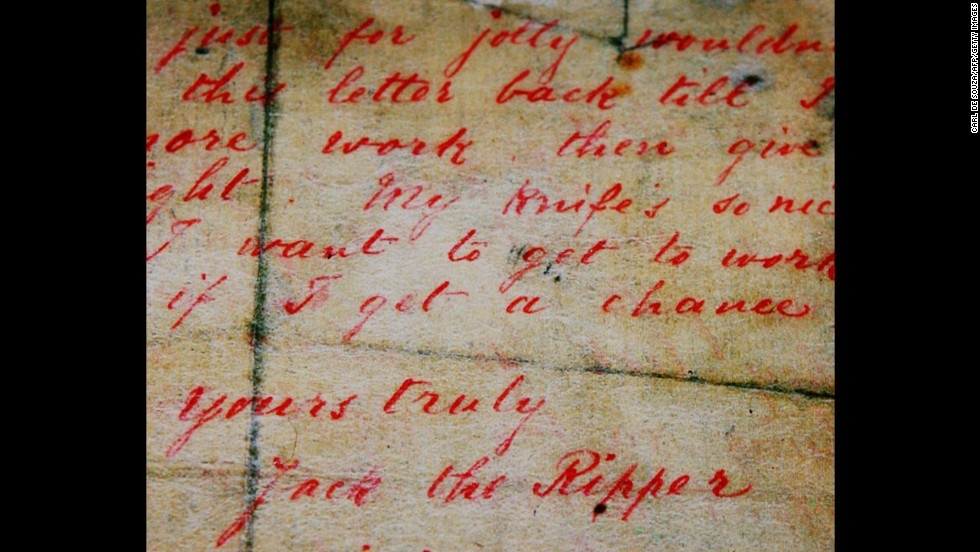 just for jolly wouldn
this letter back till I
more work. then give
ght. My Knife's so nic
I want to get to work
if I get a chance
Yours truly
Jack the Ripper
CARL DE SOUZA/AFP/GETTY IMAGES